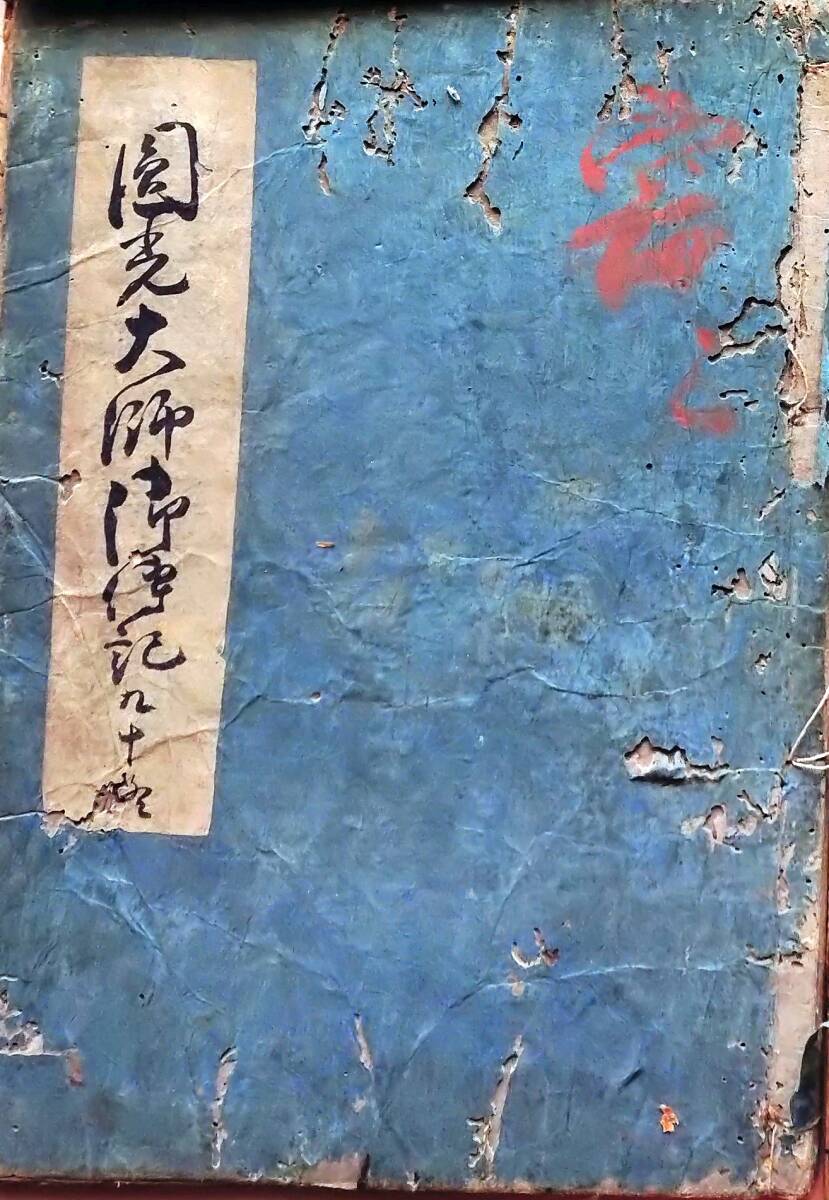 圓光大師御傳記九十終